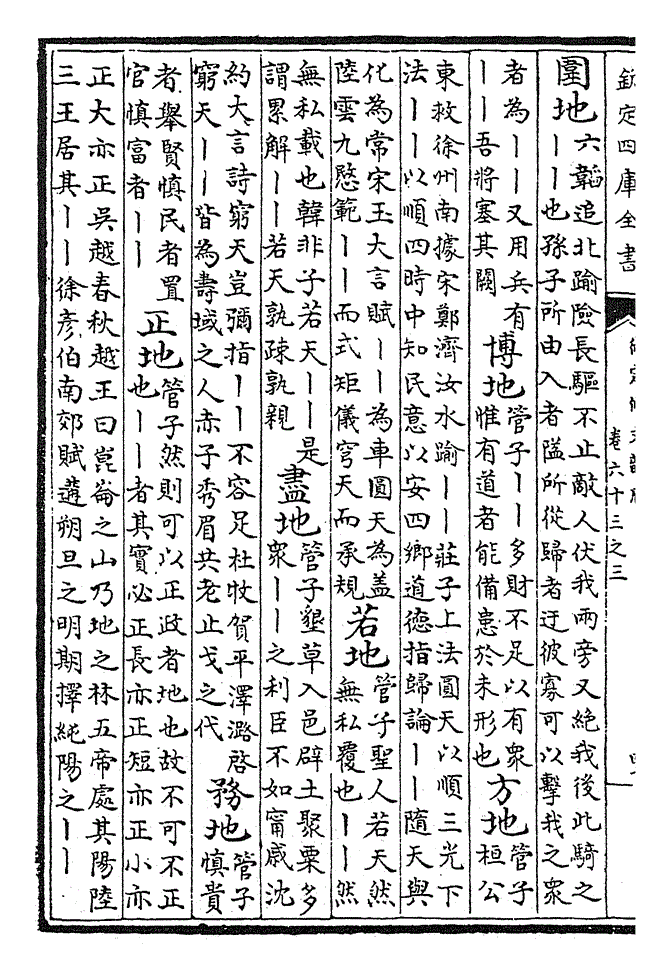 欽定四庫全書
卷六十三之三
圍地六韜追北踰險長驅不止敵人伏我兩旁又絶我後此騎之
丨丨也孫子所由入者隘所從歸者迂彼寡可以擊我之衆
者為丨丨又用兵有
丨丨吾將塞其闕
博地管子丨丨多財不足以有衆
惟有道者能備患於未形也
方地管子
桓公
東救徐州南據宋鄭濟汝水踰丨丨莊子上法圓天以順三光下
法丨丨以順四時中知民意以安四鄉道德指歸論丨丨隨天與
化為常宋玉大言賦丨丨為車圓天為盖
陸雲九愍範丨丨而式矩儀穹天而承規
若地管子聖人若天然
無私覆也丨丨然
無私載也韓非子若天丨丨是
謂累解丨丨若天孰疎孰親
盡地管子墾草入邑辟土聚粟多
衆丨丨之利臣不如甯戚沈
約大言詩窮天豈彌指丨丨不容足杜牧賀平澤潞啓
窮天丨丨皆為壽域之人赤子秀眉共老止戈之代
務地管子
慎貴
者舉賢慎民者置
官慎富者丨丨
正地管子然則可以正政者地也故不可不正
也丨丨者其實必正長亦正短亦正小亦
正大亦正吳越春秋越王曰崑崙之山乃地之林五帝處其陽陸
三王居其丨丨徐彦伯南郊賦遴朔旦之明期擇純陽之丨丨